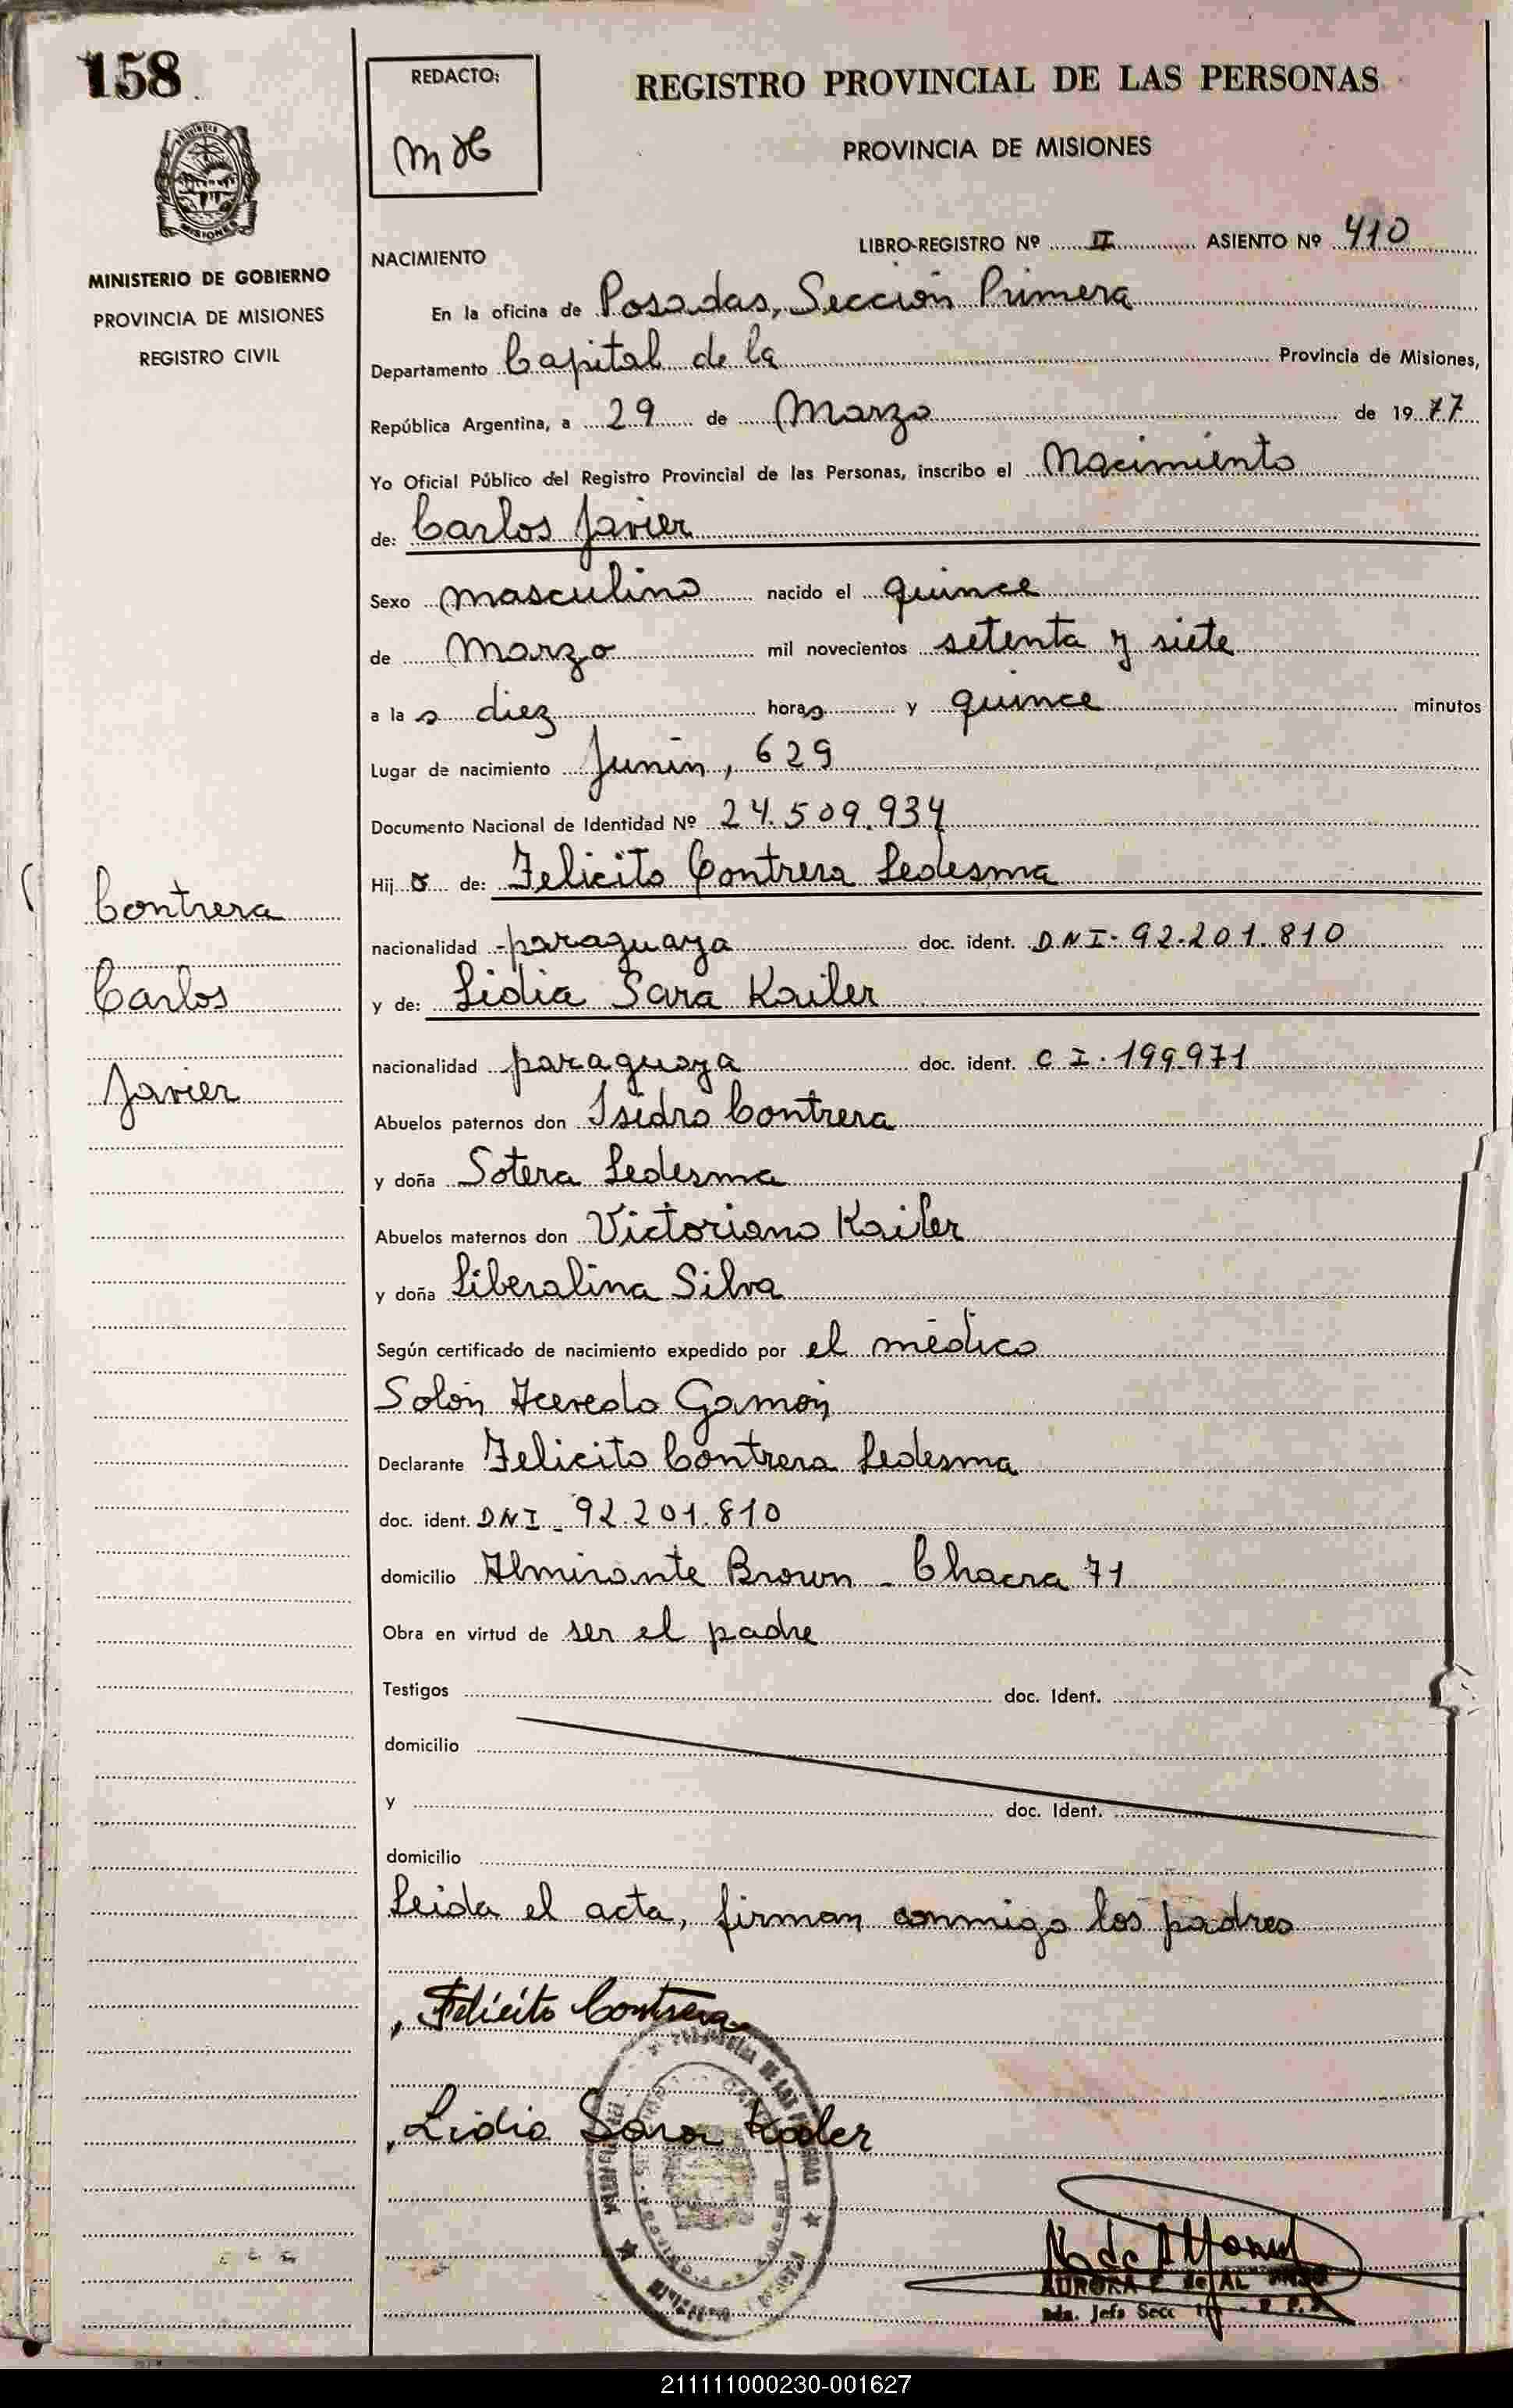 158
REDACTO:
MH
REGISTRO PROVINCIAL DE LAS PERSONAS
PROVINCIA DE MISIONES
MINISTERIO DE GOBIERNO
PROVINCIA DE MISIONES
REGISTRO CIVIL
NACIMIENTO LIBRO-REGISTRO Nº II ASIENTO Nº 410
En la oficina de Posadas, Sección Primera
Departamento Capital de la Provincia de Misiones,
República Argentina, a 29 de Marzo de 1977
Yo Oficial Público del Registro Provincial de las Personas, inscribo el Nacimiento
de: Carlos Javier
Sexo masculino nacido el quince
de marzo mil novecientos setenta y siete
a las diez horas y quince minutos
Lugar de nacimiento Junín, 629
Documento Nacional de Identidad Nº 24.509.934
Hijo de: Felicito Contrera Ledesma
nacionalidad paraguaya doc. ident. DNI- 92.201.810
y de: Lidia Sara Kailer
nacionalidad paraguaya doc. ident. C I. 199.971
Abuelos paternos don Isidro Contrera
y doña Sotera Ledesma
Abuelos maternos don Victoriano Kailer
y doña Liberalina Silva
Según certificado de nacimiento expedido por el médico
Solón Acevedo Gamón
Declarante Felicito Contrera Ledesma
doc. ident. DNI - 92.201.810
domicilio Almirante Brown - Chacra 71
Obra en virtud de ser el padre
Testigos doc. Ident.
domicilio
y doc. Ident.
domicilio
Leida el acta, firman conmigo los padres
Contrera
Carlos
Javier
Felicito Contrera
Lidia Sara Kailer
AURORA de AL
Jefa Secc
211111000230-001627